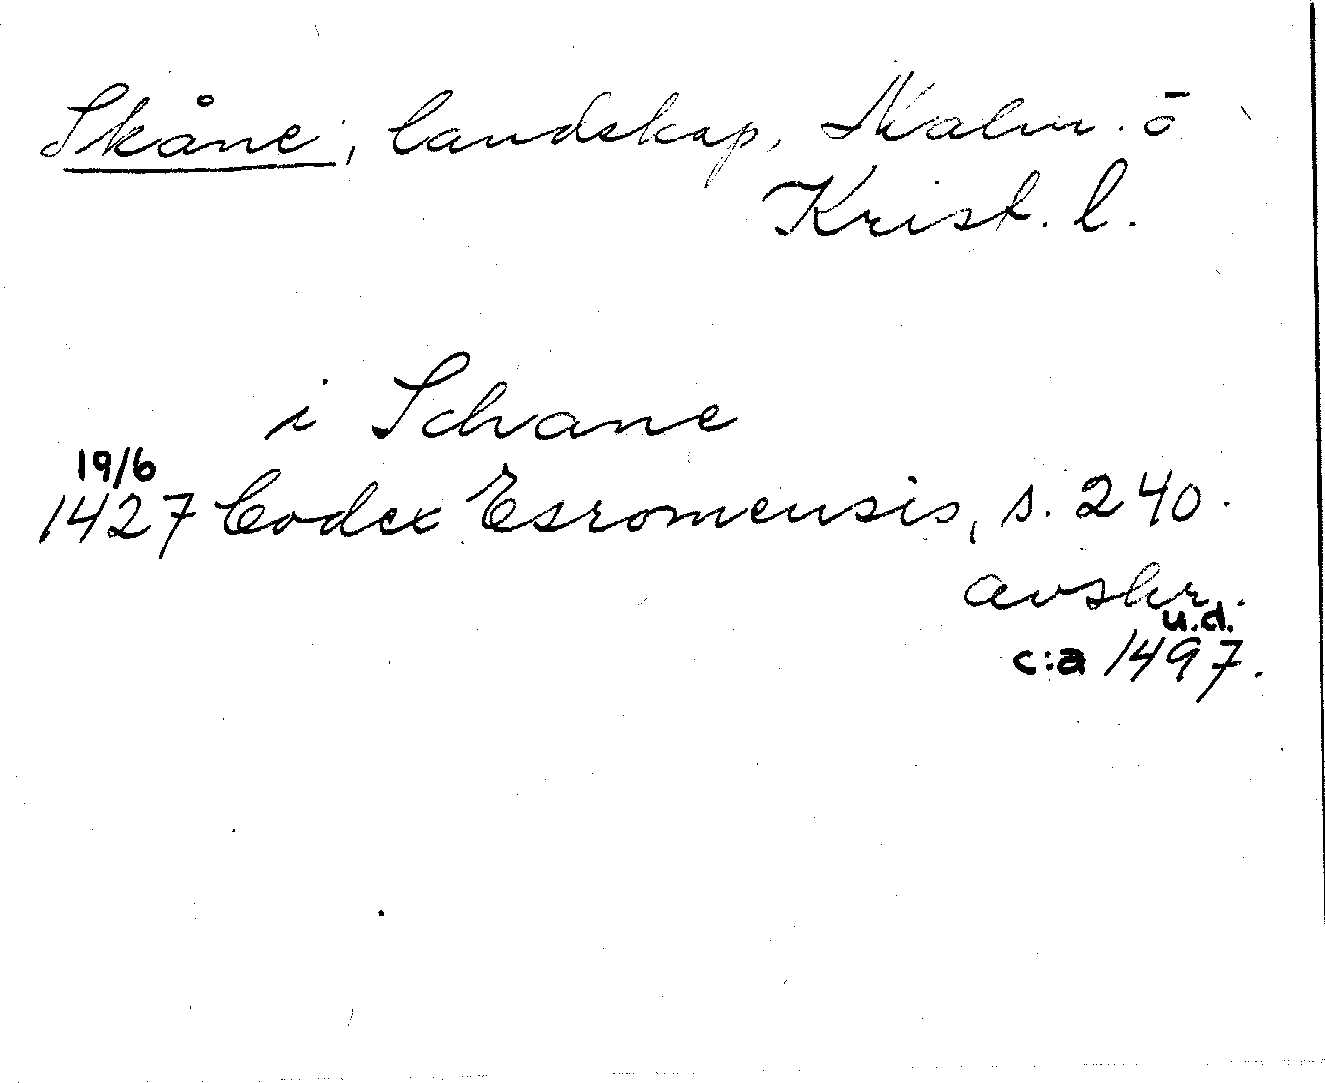 Skåne, landskap, Malm. o
Krist. l.
i Schane
19/6
1427 Codex Esromensis, s. 240.
avskr.
u.d.
c:a 1497.